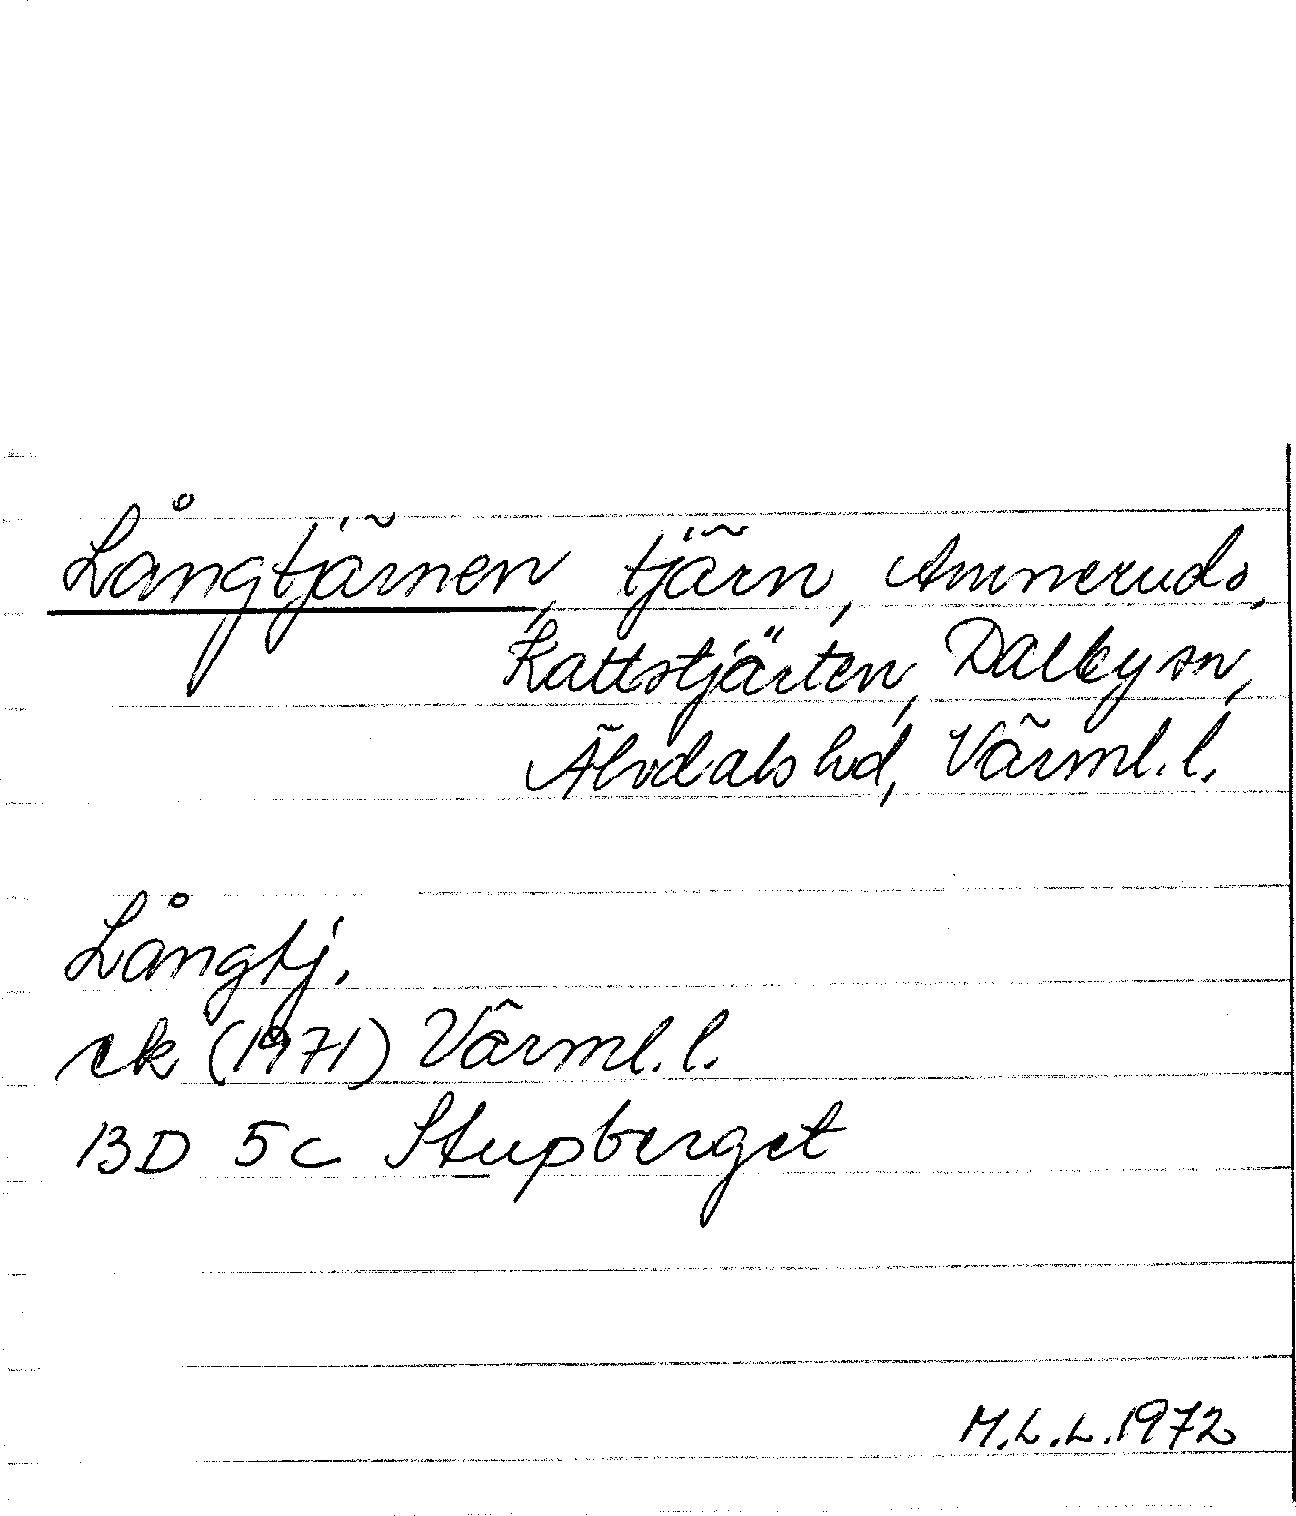 Långtjärnen, tjärn, Amneruds,
Kattstjärten, Dalby sn,
Älvdals hd, Värml.l.
Långtj.
ek (1971) Värml.l.
13D 5c Stupberget
M.L.L.1972